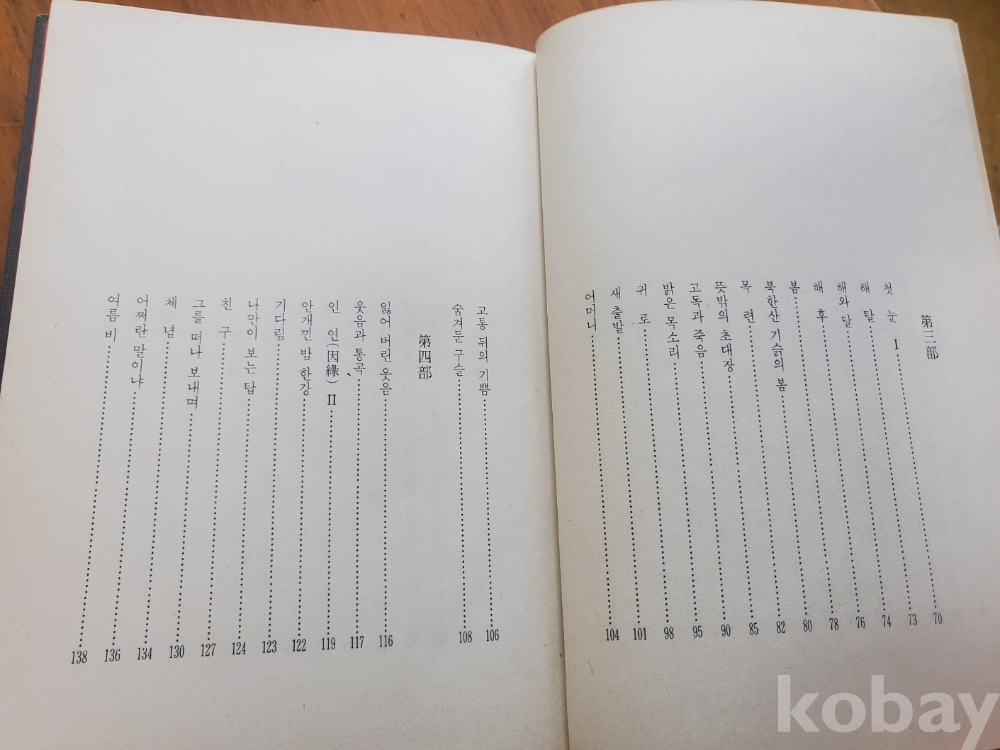 第三部
첫 눈 Ⅰ 70
해 탈 73
해와 달 74
해 후 76
봄 78
북한산 기슭의 봄 80
목 련 82
뜻밖의 초대장 85
고독과 죽음 90
밝은 목소리 95
귀 로 98
새 출발 101
어머니 104
고통 뒤의 기쁨 106
숨겨둔 구슬 108
第四部
잃어 버린 웃음 116
웃음과 통곡 117
인 연(因緣) Ⅱ 119
안개낀 밤 한강 122
기다림 123
나만이 보는 탑 124
친 구 127
그를 떠나 보내며 130
체 념 134
어쩌란 말이냐 136
여름 비 138
kobay